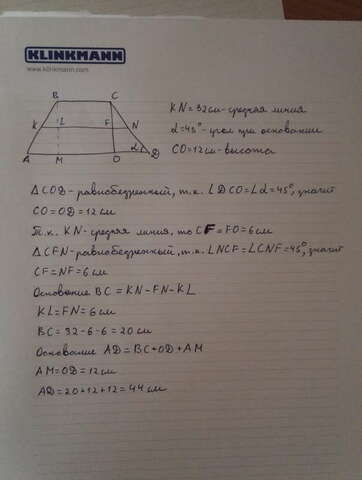 KLINKMANN
www.klinkmann.com
B C
K L F N
A M O D
α
KN=32см-средняя линия
α=45°-угол при основании
CO=12см-высота
ΔCOD-равнобедренный, т.к. ∠DCO=∠α=45°, значит
CO=OD=12см
Т.к. KN-средняя линия, то CF=FO=6см
ΔCFN-равнобедренный, т.к. ∠NCF=∠CNF=45°, значит
CF=NF=6см
Основание BC=KN-FN-KL
KL=FN=6см
BC=32-6-6=20см
Основание AD=BC+OD+AM
AM=OD=12см
AD=20+12+12=44см